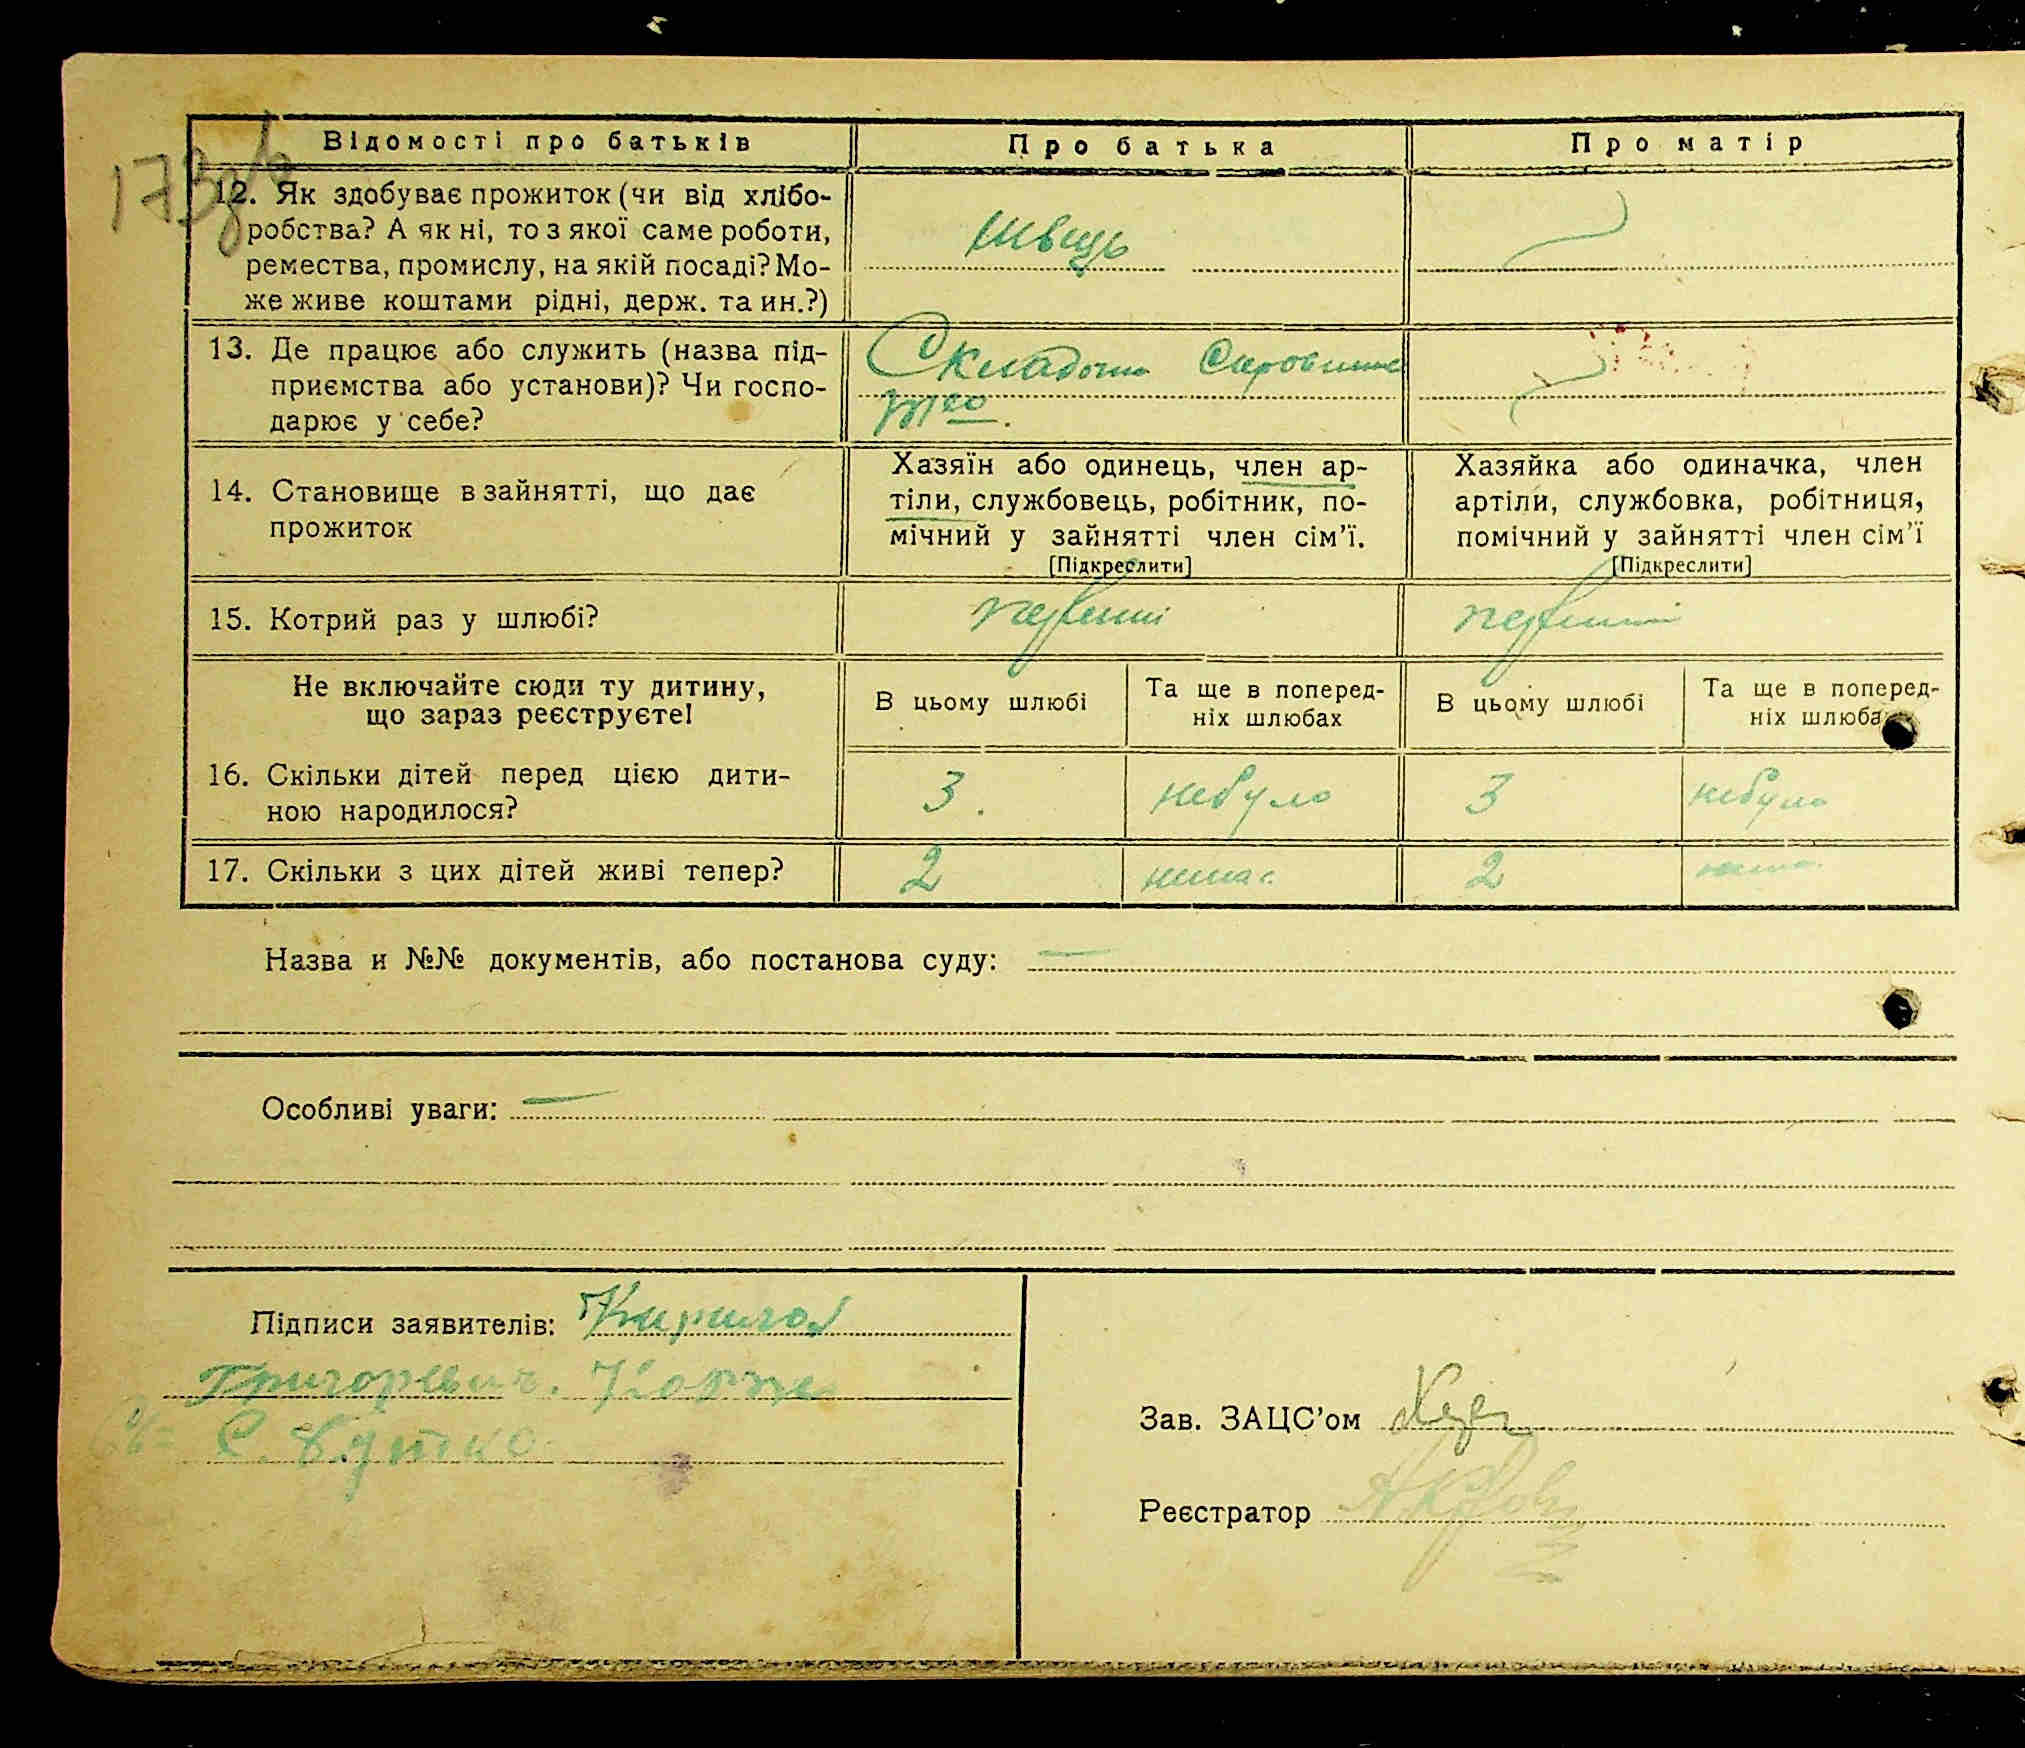 173
Відомості про батьків
Про батька
Про матір
12. Як здобуває прожиток (чи від хлібо-
робства? А як ні, то з якої саме роботи,
ремества, промислу, на якій посаді? Мо-
же живе коштами рідні, держ. та ин.?)
швець
13. Де працює або служить (назва під-
приємства або установи)? Чи госпо-
дарює у себе?
14. Становище в зайнятті, що дає
прожиток
Хазяїн або одинець, член ар-
тіли, службовець, робітник, по-
мічний у зайнятті член сім'ї.
[Підкреслити]
Хазяйка або одиначка, член
артіли, службовка, робітниця,
помічний у зайнятті член сім'ї
[Підкреслити]
15. Котрий раз у шлюбі?
Не включайте сюди ту дитину,
що зараз реєструєте!
В цьому шлюбі
Та ще в поперед-
ніх шлюбах
В цьому шлюбі
Та ще в поперед-
ніх шлюба
16. Скільки дітей перед цією дити-
ною народилося?
3.
небуло
3
небуло
17. Скільки з цих дітей живі тепер?
2
немає
2
Назва и №№ документів, або постанова суду: —
Особливі уваги: —
Підписи заявителів: Кирилов
Григоревич.
С. Бутко
Зав. ЗАЦС'ом
Реєстратор